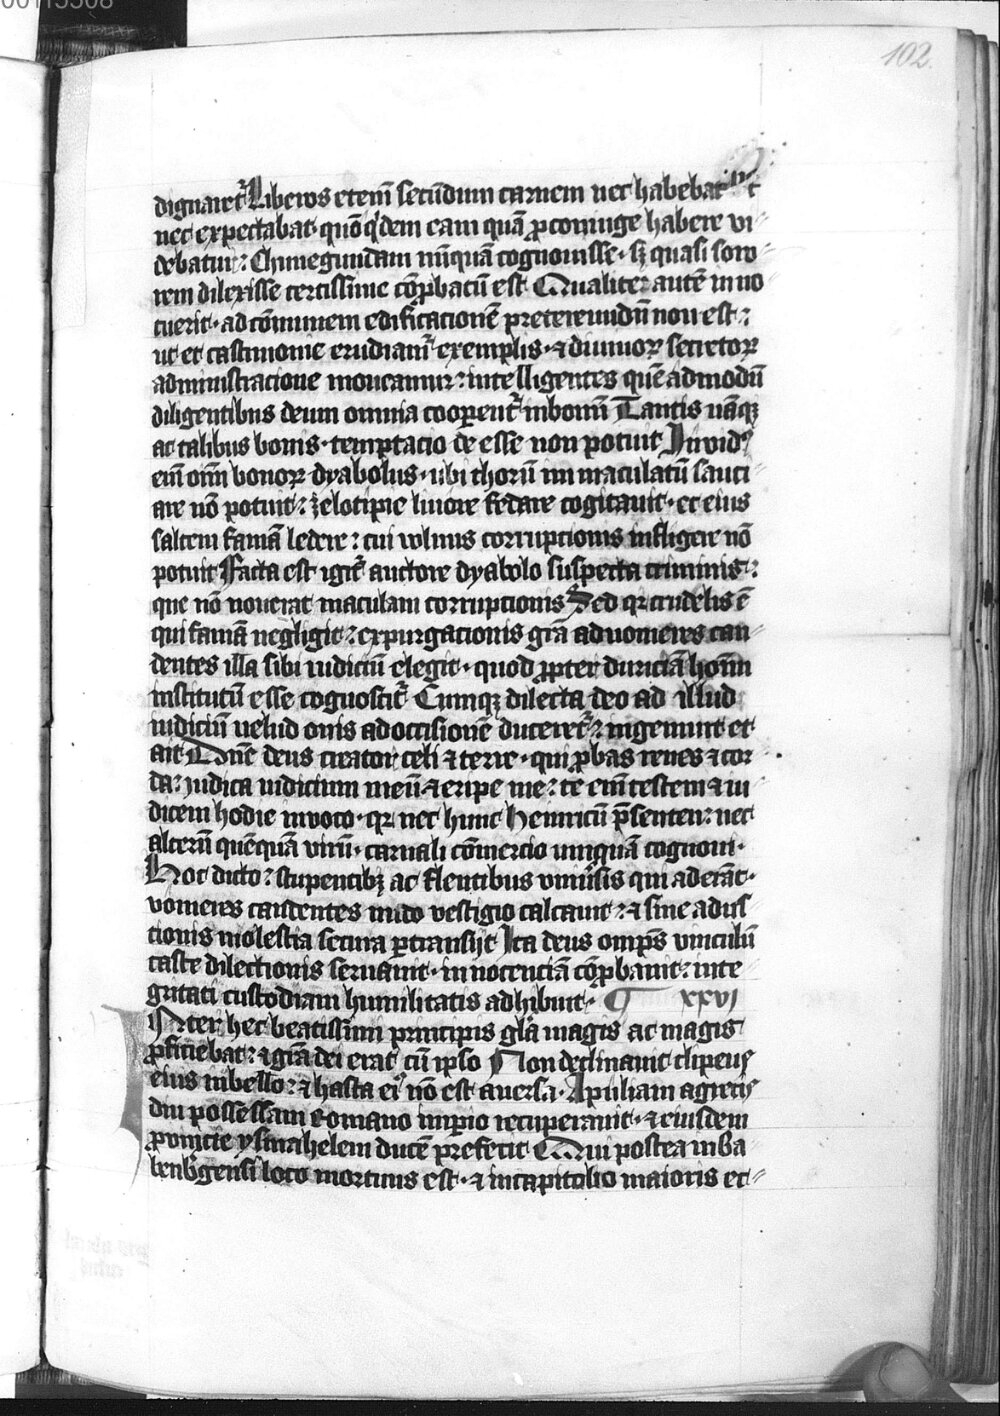 00113308
102.
dignaret᷑ Liberos eteni᷑ secūdum carnem nec habebat
nec expectabat· quōq̇dem eam quā ꝓconiuge habere vi
debatur: Chunegundam nūquā cognouisse· sꝫ quasi soro
rem dilexisse certissime cōprobatū est Qualiter autē inno
tuerit· ad cōmunem edificationē pretereundū non est:
ut et castimonie erudiam᷑ exemplis· ⁊ diuinoꝝ secretoꝝ
administracione moneamur: intelligentes quēadmodū
diligentibus deum omnia cooperent᷑ inbonū Tantis nāqꝫ
ac talibus bonis· temptacio deesse non potuit Inuidꝰ
eīn om̄ bonoꝝ dyabolus· ubi thorū immaculatū sauci
are nō potuit: zelotipie liuore fedare cogitauit· et eius
saltem famā ledere: cui vulnus corruptionis infligere nō
potuit Facta est igit᷑ auctore dyabolo suspecta criminis:
que nō nouerat maculam corruptionis Sed qꝛ crudelis ē
qui famā negligit: expurgationis grā aduomeres can
dentes illa sibi iudiciū elegit· quod ꝓpter duriciā homī
institutū esse cognoscit᷑ Cumqꝫ dilecta deo ad illud
iudiciū velud ouis adoccisionē duceret᷑: ingemuit et
ait Dn̄e deus creator celi ⁊ terre· qui ꝓbas renes ⁊ cor
da: iudica iudicium meū ⁊ eripe me: te eīn testem ⁊ iu
dicem hodie inuoco· qꝛ nec hunc Heinricū p̄sentem: nec
alterū quēquā virū· carnali cōmercio unquā cognoui·
Hoc dicto: stupentibꝫ ac flentibus vniuersis qui aderāt·
vomeres candentes nudo vestigio calcauit: ⁊ sine adus
tionis molestia secura ꝑtransijt Ita deus omp̄s vinculū
caste dilectionis seruauit· innocenciā cōprobauit: inte
gritati custodiam humilitatis adhibuit· ¶ xxvi
Inter hec beatissimi principis glā magis ac magis
ꝓficiebat: ⁊ grā dei erat cū ipso Non declinauit clipeus
eius inbello: ⁊ hasta eiꝰ nō est auersa· Apuliam agrecis
diu possessam Romano imperio recuperauit· ⁊ eiusdem
ꝓuincie ysmahelem ducē prefecit Qui postea inba
benb᷑gensi loco mortuus est· ⁊ incapitolio maioris ec